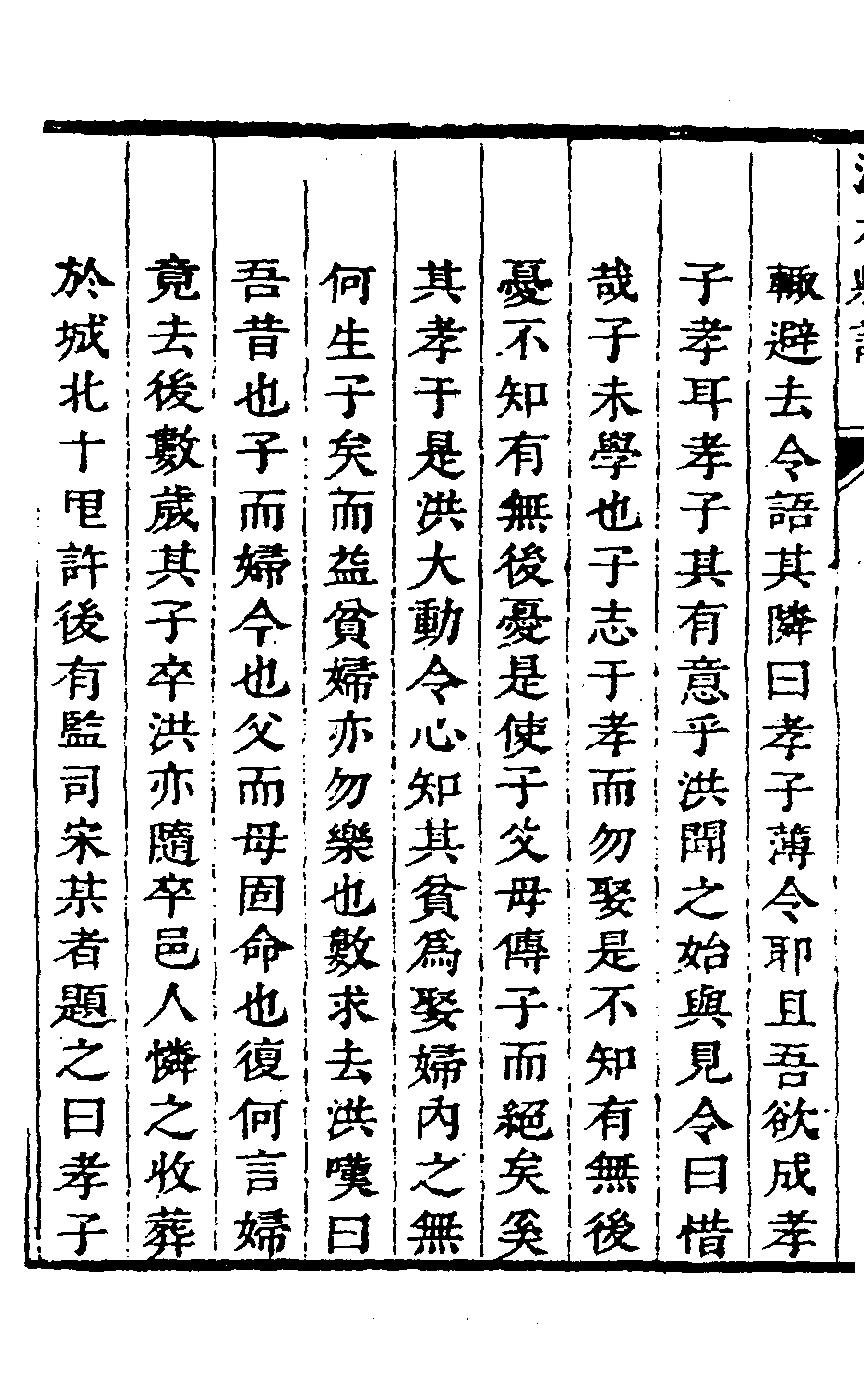 輙避去令語其隣曰孝子薄令耶且吾欲成孝
子孝耳孝子其有意乎洪聞之始與見令曰惜
哉子未學也子志于孝而勿娶是不知有無後
憂不知有無後憂是使子父母傳子而絕矣奚
其孝于是洪大動令心知其貧爲娶婦內之無
何生子矣而益貧婦亦勿樂也數求去洪嘆曰
吾昔也子而婦今也父而母固命也復何言婦
竟去後數歲其子卒洪亦隨卒邑人憐之收葬
於城北十里許後有監司宋某者題之曰孝子